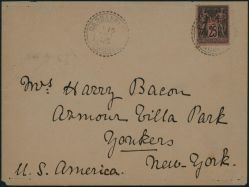 25
Mrs Harry Bacon
Armour Villa Park
Yonkers
New York.
U. S. America.